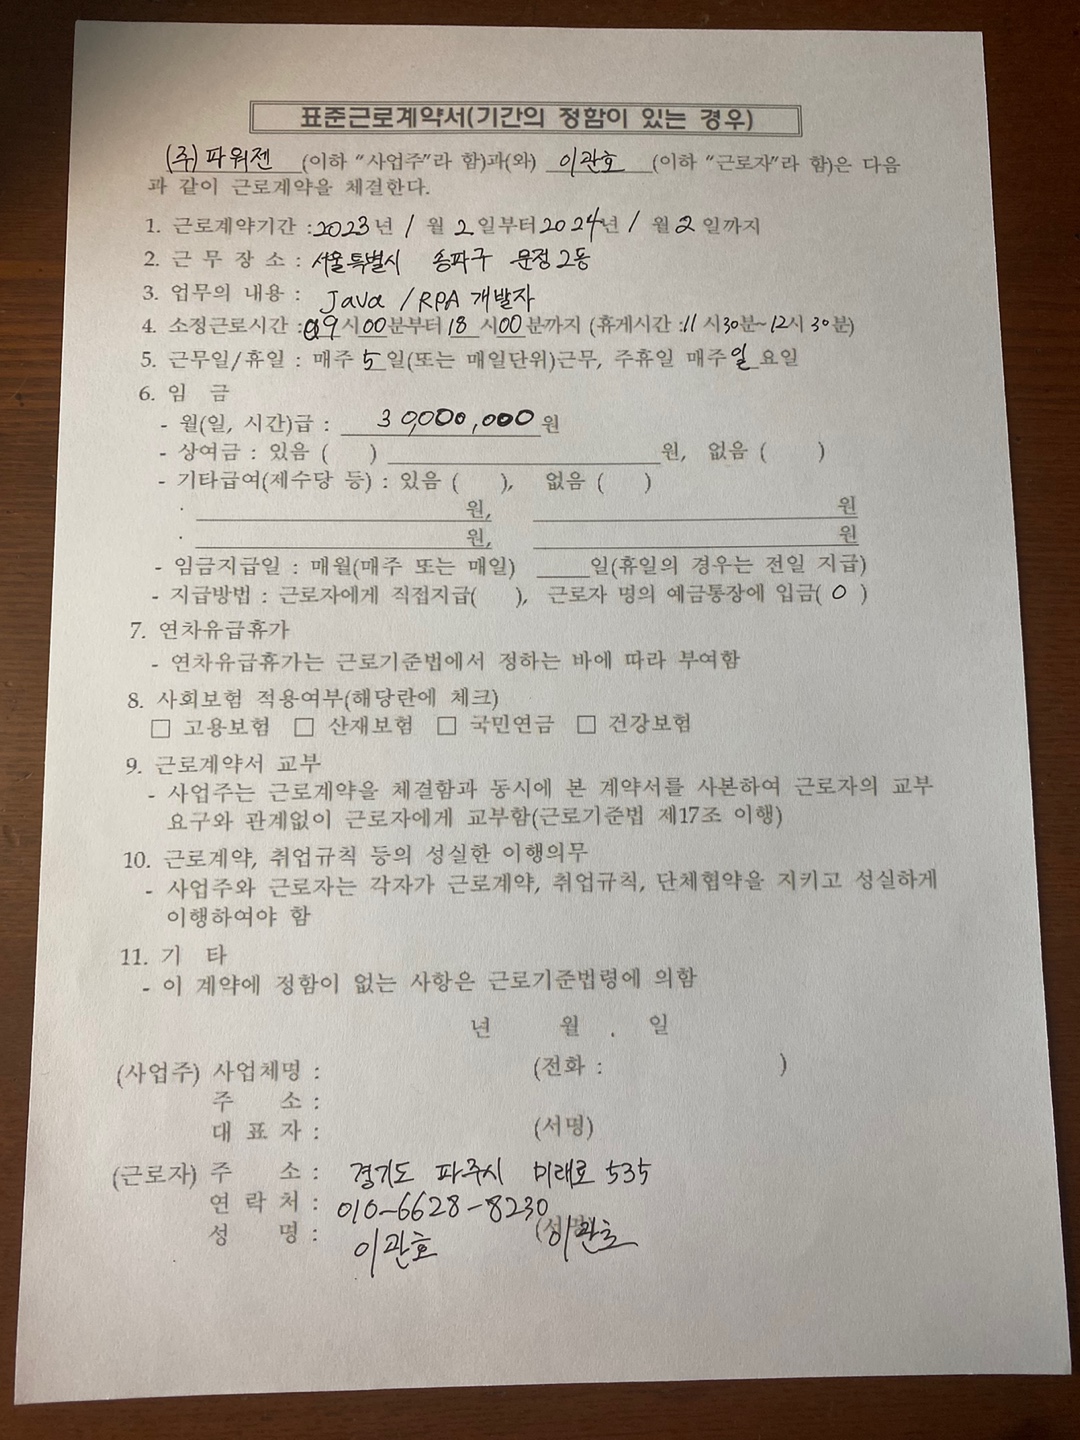 표준근로계약서(기간의 정함이 있는 경우)
(주)파워젠 (이하 “사업주”라 함)과(와) 이관호 (이하 “근로자”라 함)은 다음
과 같이 근로계약을 체결한다.
1. 근로계약기간 : 2023년 1월 2일부터 2024년 1월 2일까지
2. 근 무 장 소 : 서울특별시 송파구 문정2동
3. 업무의 내용 : Java / RPA 개발자
4. 소정근로시간 : 09시00분부터 18시00분까지 (휴게시간 : 11시30분~12시30분)
5. 근무일/휴일 : 매주 5일(또는 매일단위)근무, 주휴일 매주 일요일
6. 임 금
- 월(일, 시간)급 : 30,000,000원
- 상여금 : 있음 ( ) 원, 없음 ( )
- 기타급여(제수당 등) : 있음 ( ), 없음 ( )
· 원, 원
· 원, 원
- 임금지급일 : 매월(매주 또는 매일) 일(휴일의 경우는 전일 지급)
- 지급방법 : 근로자에게 직접지급( ), 근로자 명의 예금통장에 입금( O )
7. 연차유급휴가
- 연차유급휴가는 근로기준법에서 정하는 바에 따라 부여함
8. 사회보험 적용여부(해당란에 체크)
□ 고용보험 □ 산재보험 □ 국민연금 □ 건강보험
9. 근로계약서 교부
- 사업주는 근로계약을 체결함과 동시에 본 계약서를 사본하여 근로자의 교부
요구와 관계없이 근로자에게 교부함(근로기준법 제17조 이행)
10. 근로계약, 취업규칙 등의 성실한 이행의무
- 사업주와 근로자는 각자가 근로계약, 취업규칙, 단체협약을 지키고 성실하게
이행하여야 함
11. 기 타
- 이 계약에 정함이 없는 사항은 근로기준법령에 의함
년 월 일
(사업주) 사업체명 : (전화 : )
주 소 :
대 표 자 : (서명)
(근로자) 주 소 : 경기도 파주시 미래로 535
연 락 처 : 010-6628-8230
성 명 : 이관호 (서명) 이관호